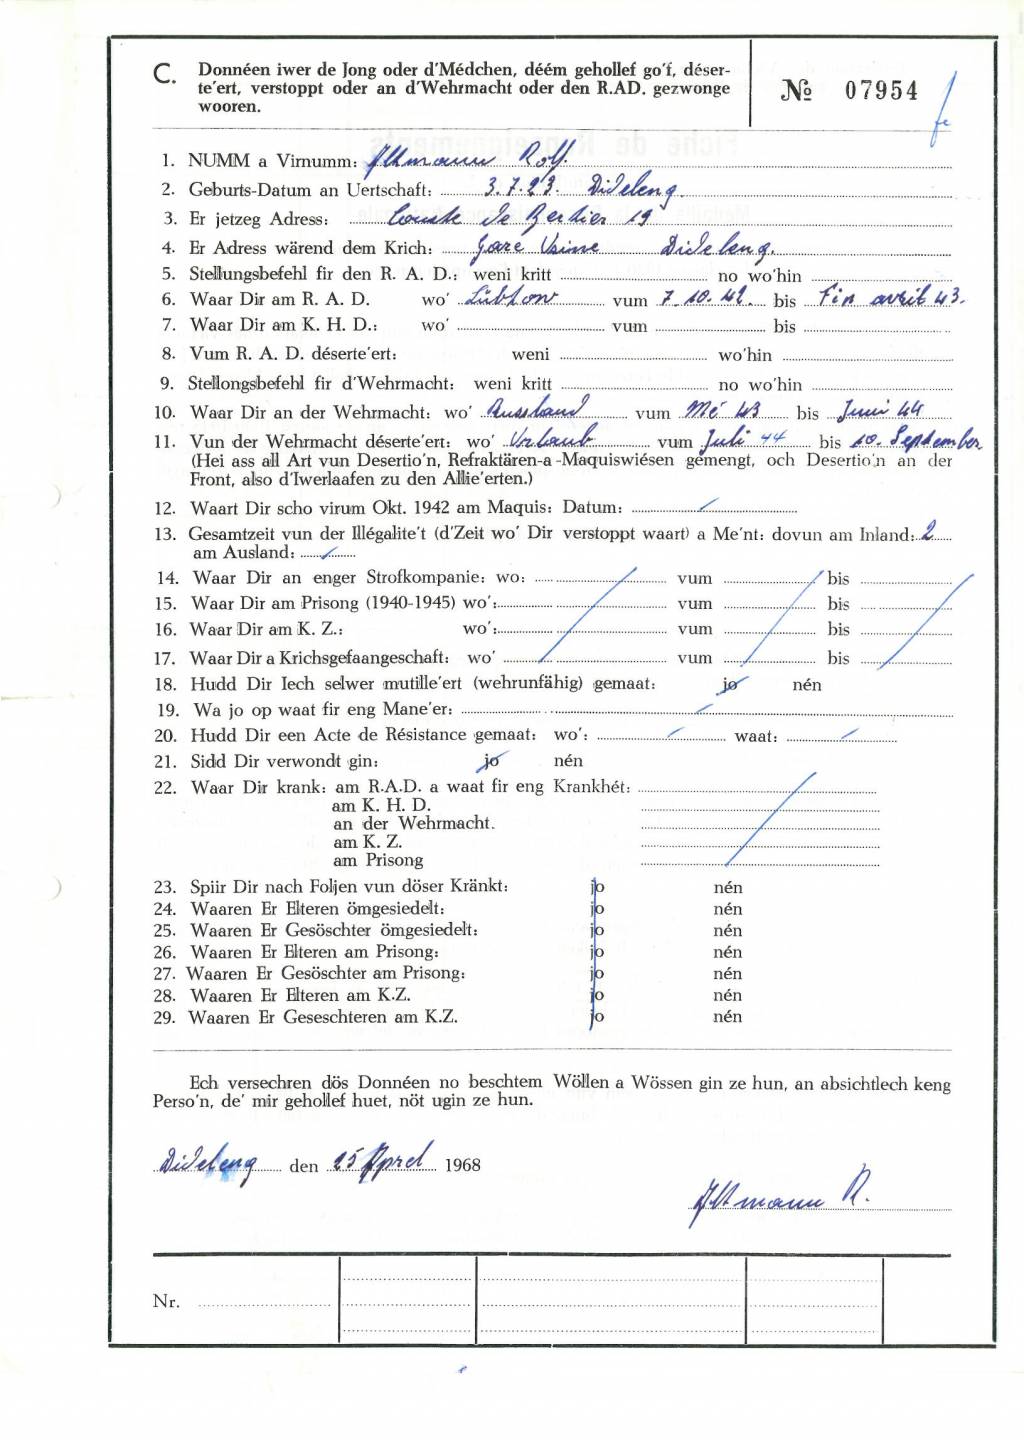 C. Donnéen iwer de Jong oder d'Médchen, déém gehollef go'f, déser-
te'ert, verstoppt oder an d'Wehrmacht oder den R.AD. gezwonge
wooren.
№ 07954
1. NUMM a Virnumm: Altmann Rolf.
2. Geburts-Datum an Uertschaft: 3.7.23. Dideleng.
3. Er jetzeg Adress: de Bertier 19
4. Er Adress wärend dem Krich: Gare Usine Dideleng.
5. Stellungsbefehl fir den R. A. D.: weni kritt no wo'hin
6. Waar Dir am R. A. D. wo' Lübtow vum 7.10.42. bis Fin avril 43.
7. Waar Dir am K. H. D.: wo' vum bis
8. Vum R. A. D. déserte'ert: weni wo'hin
9. Stellongsbefehl fir d'Wehrmacht: weni kritt no wo'hin
10. Waar Dir an der Wehrmacht: wo' Russland vum Mé 43 bis Juni 44
11. Vun der Wehrmacht déserte'ert: wo' Urlaub vum Juli 44 bis 10. September
(Hei ass all Art vun Desertio'n, Refraktären-a-Maquiswiésen gemengt, och Desertio'n an der
Front, also d'Iwerlaafen zu den Allie'erten.)
12. Waart Dir scho virum Okt. 1942 am Maquis: Datum:
13. Gesamtzeit vun der Illégalite't (d'Zeit wo' Dir verstoppt waart) a Me'nt: dovun am Inland: 2
am Ausland:
14. Waar Dir an enger Strofkompanie: wo: vum bis
15. Waar Dir am Prisong (1940-1945) wo': vum bis
16. Waar Dir am K. Z.: wo': vum bis
17. Waar Dir a Krichsgefaangeschaft: wo' vum bis
18. Hudd Dir Iech selwer mutille'ert (wehrunfähig) gemaat: jo nén
19. Wa jo op waat fir eng Mane'er:
20. Hudd Dir een Acte de Résistance gemaat: wo': waat:
21. Sidd Dir verwondt gin: jo nén
22. Waar Dir krank: am R.A.D. a waat fir eng Krankhét:
am K. H. D.
an der Wehrmacht.
am K. Z.
am Prisong
23. Spiir Dir nach Foljen vun döser Kränkt: jo nén
24. Waaren Er Elteren ömgesiedelt: jo nén
25. Waaren Er Gesöschter ömgesiedelt: jo nén
26. Waaren Er Elteren am Prisong: jo nén
27. Waaren Er Gesöschter am Prisong: jo nén
28. Waaren Er Elteren am K.Z. jo nén
29. Waaren Er Geseschteren am K.Z. jo nén
Ech versechren dös Donnéen no beschtem Wöllen a Wössen gin ze hun, an absichtlech keng
Perso'n, de' mir gehollef huet, nöt ugin ze hun.
Dideleng den 25 April 1968
Altmann R.
Nr.